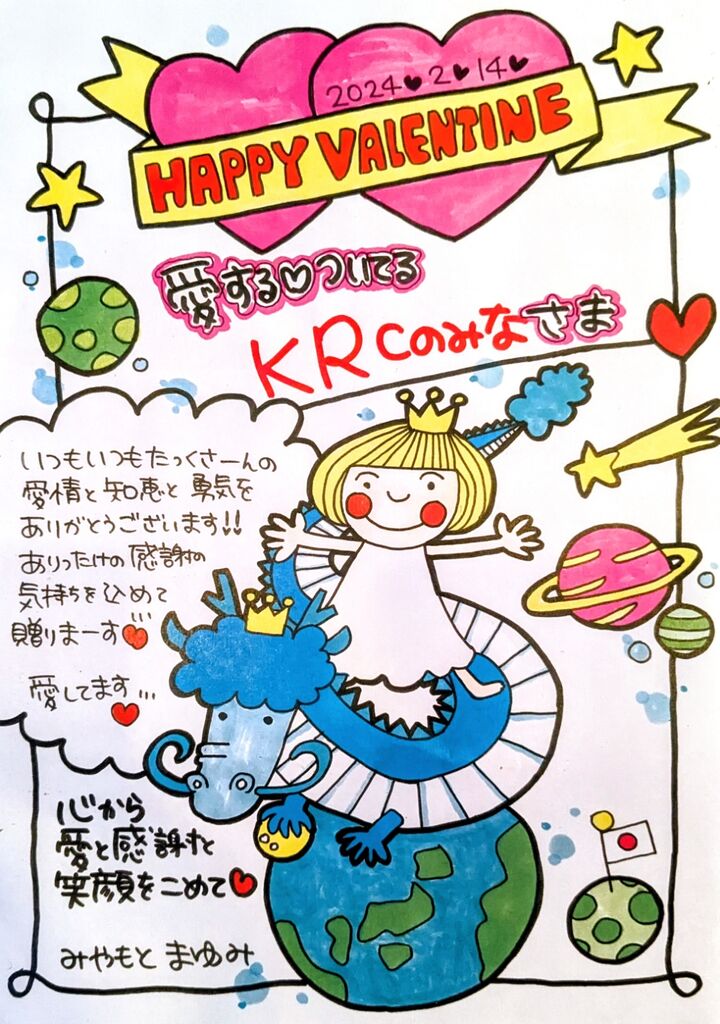 2024♥2♥14♥
HAPPY VALENTINE
愛する♡ついてる
KRCのみなさま
いつもいつもたっくさーんの
愛情と知恵と勇気を
ありがとうございます!!
ありったけの感謝の
気持ちを込めて…
贈りまーす♥
愛してます…
♥
心から
愛と感謝と
笑顔をこめて♥
みやもと まゆみ